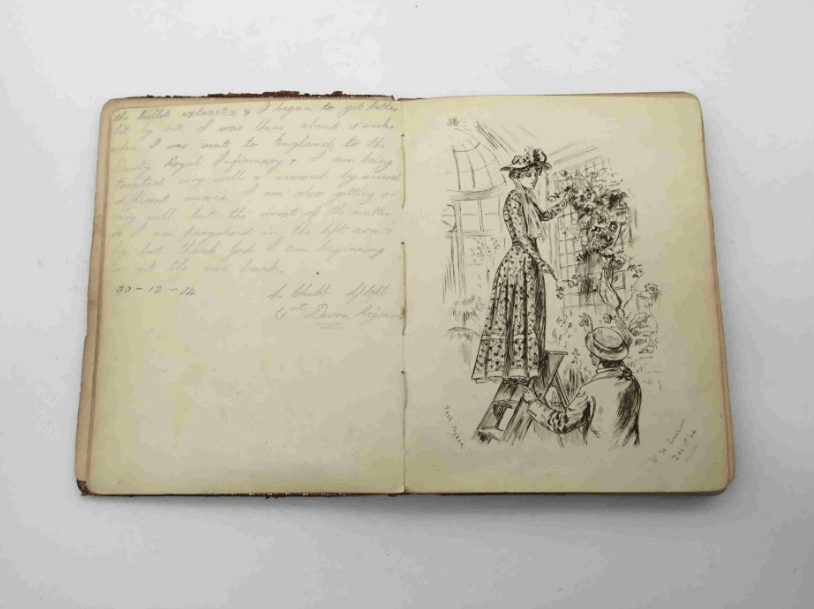 the bullet extracted & I began to get better
bit by bit. I was there about weeks
when I was sent to England, to the
Royal Infirmary & I am being
treated very well & nursed by
different nurses, I am also getting on
very well but the worst of the matter
is I am paralysed in the left arm &
leg, but thank God I am beginning
to get the use back.
30-12-14
1st Devon Regiment
Dec 1914